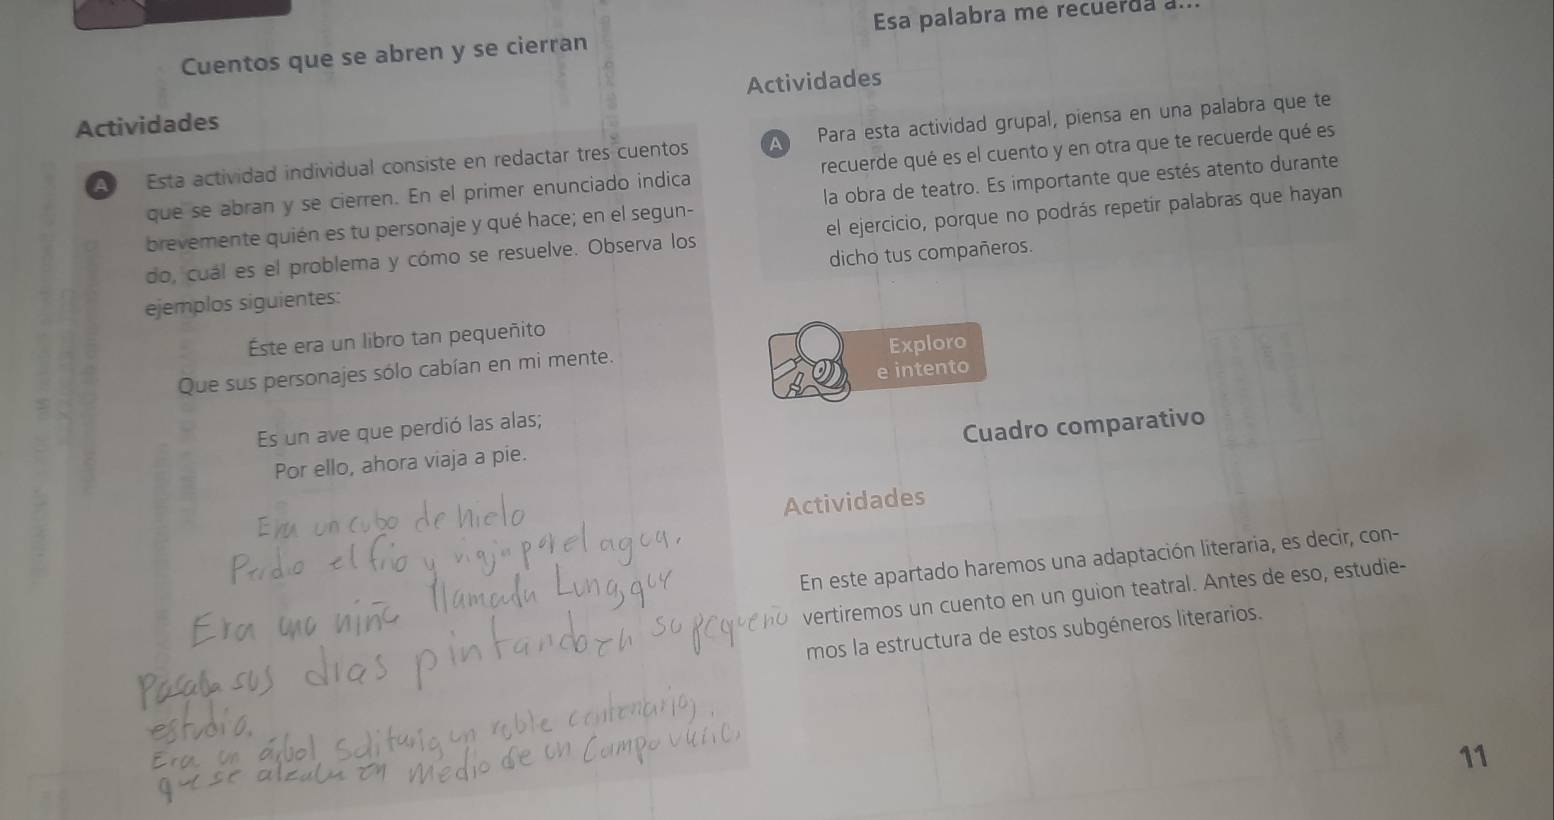 Cuentos que se abren y se cierran
Actividades
A Esta actividad individual consiste en redactar tres cuentos
que se abran y se cierren. En el primer enunciado indica
brevemente quién es tu personaje y qué hace; en el segun-
do, cuál es el problema y cómo se resuelve. Observa los
ejemplos siguientes:
Éste era un libro tan pequeñito
Que sus personajes sólo cabían en mi mente.
Es un ave que perdió las alas;
Por ello, ahora viaja a pie.
Era un cubo de hielo
Perdio el frio y viaja por el agua.
Era una niña llamada Luna, que
Pasaba sus dias pintando en su pequeño
estudio.
Era un árbol solitario, un roble centenario,
que se alzaba en medio de un campo vacio,
Esa palabra me recuerda a...
Actividades
A Para esta actividad grupal, piensa en una palabra que te
recuerde qué es el cuento y en otra que te recuerde qué es
la obra de teatro. Es importante que estés atento durante
el ejercicio, porque no podrás repetir palabras que hayan
dicho tus compañeros.
Exploro
e intento
Cuadro comparativo
Actividades
En este apartado haremos una adaptación literaria, es decir, con-
vertiremos un cuento en un guion teatral. Antes de eso, estudie-
mos la estructura de estos subgéneros literarios.
11